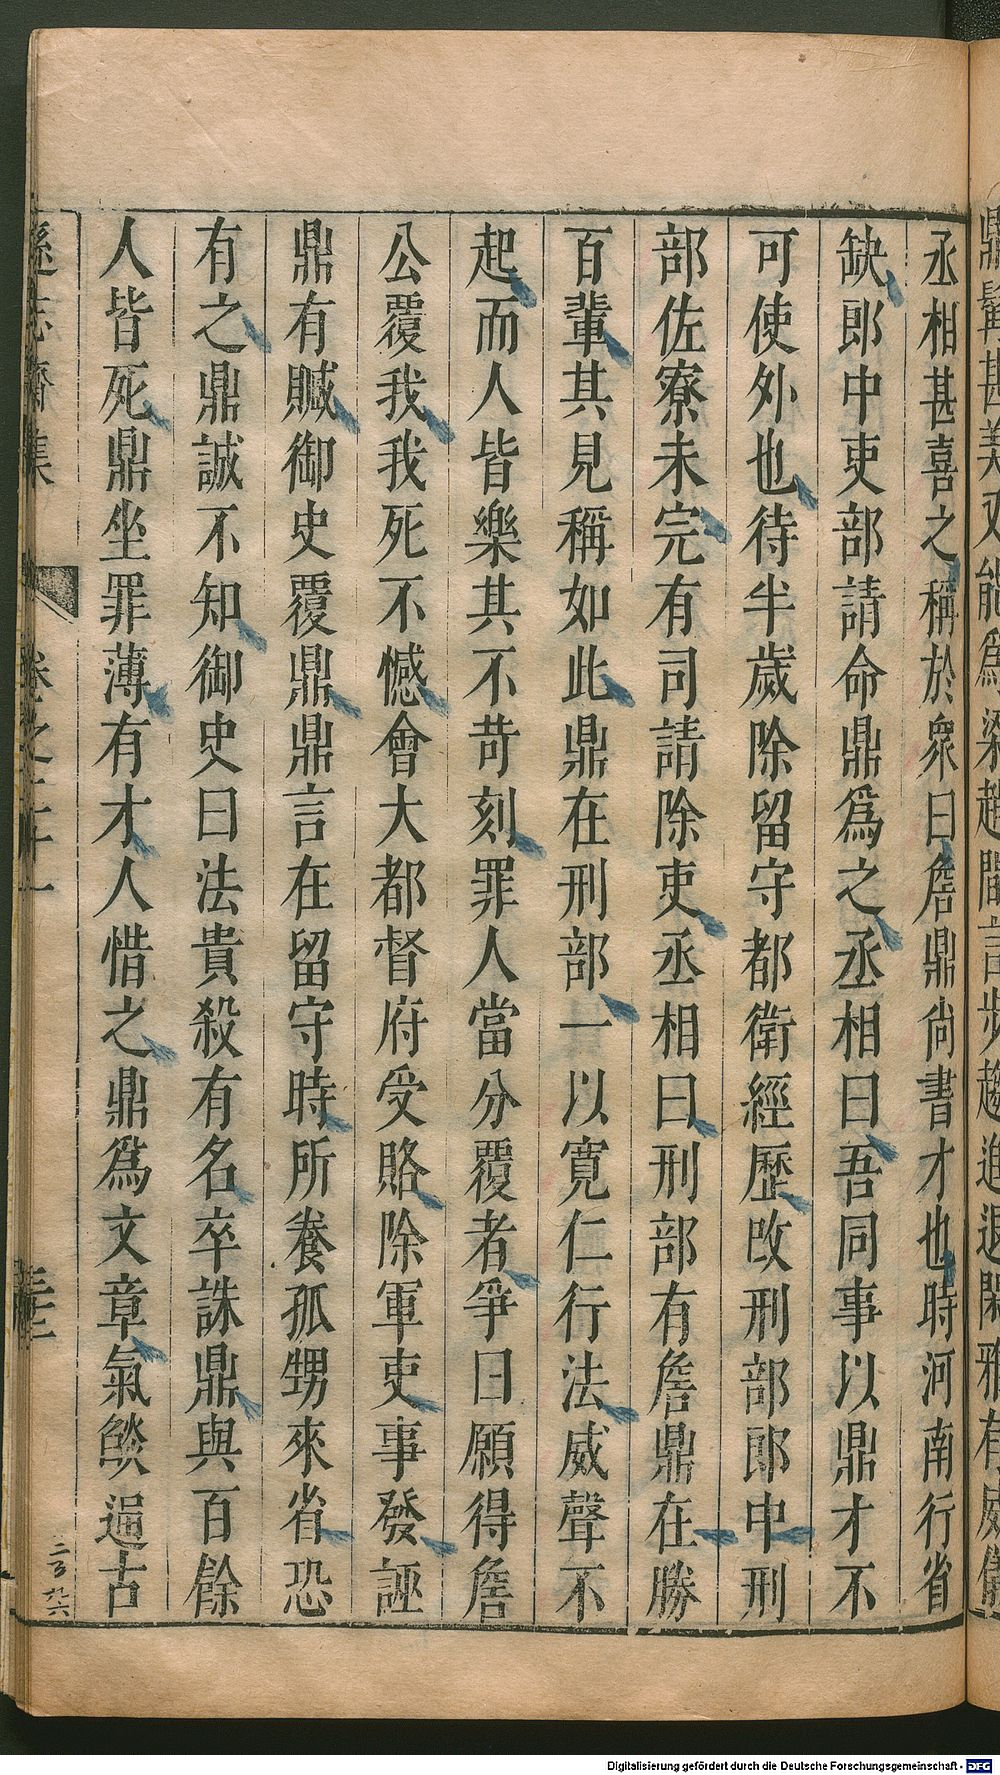 鼎髯甚美又能為梁趙間言步趨進退閑雅有威儀
丞相甚喜之稱於衆曰詹鼎尚書才也時河南行省
缺郎中吏部請命鼎爲之丞相曰吾同事以鼎才不
可使外也待半歲除留守都衛經歷改刑部郎中刑
部佐寮未完有司請除吏丞相曰刑部有詹鼎在勝
百輩其見稱如此鼎在刑部一以寬仁行法威聲不
起而人皆樂其不苛刻罪人當分覆者爭曰願得詹
公覆我我死不憾會大都督府受賂除軍吏事發誣
鼎有贓御史覆鼎鼎言在留守時所養孤甥來省恐
有之鼎誠不知御史曰法貴殺有名卒誅鼎與百餘
人皆死鼎坐罪薄有才人惜之鼎爲文章氣燄逼古
遜志齋集 卷之二十一 三十二
二百九六
Digitalisierung gefördert durch die Deutsche Forschungsgemeinschaft - DFG